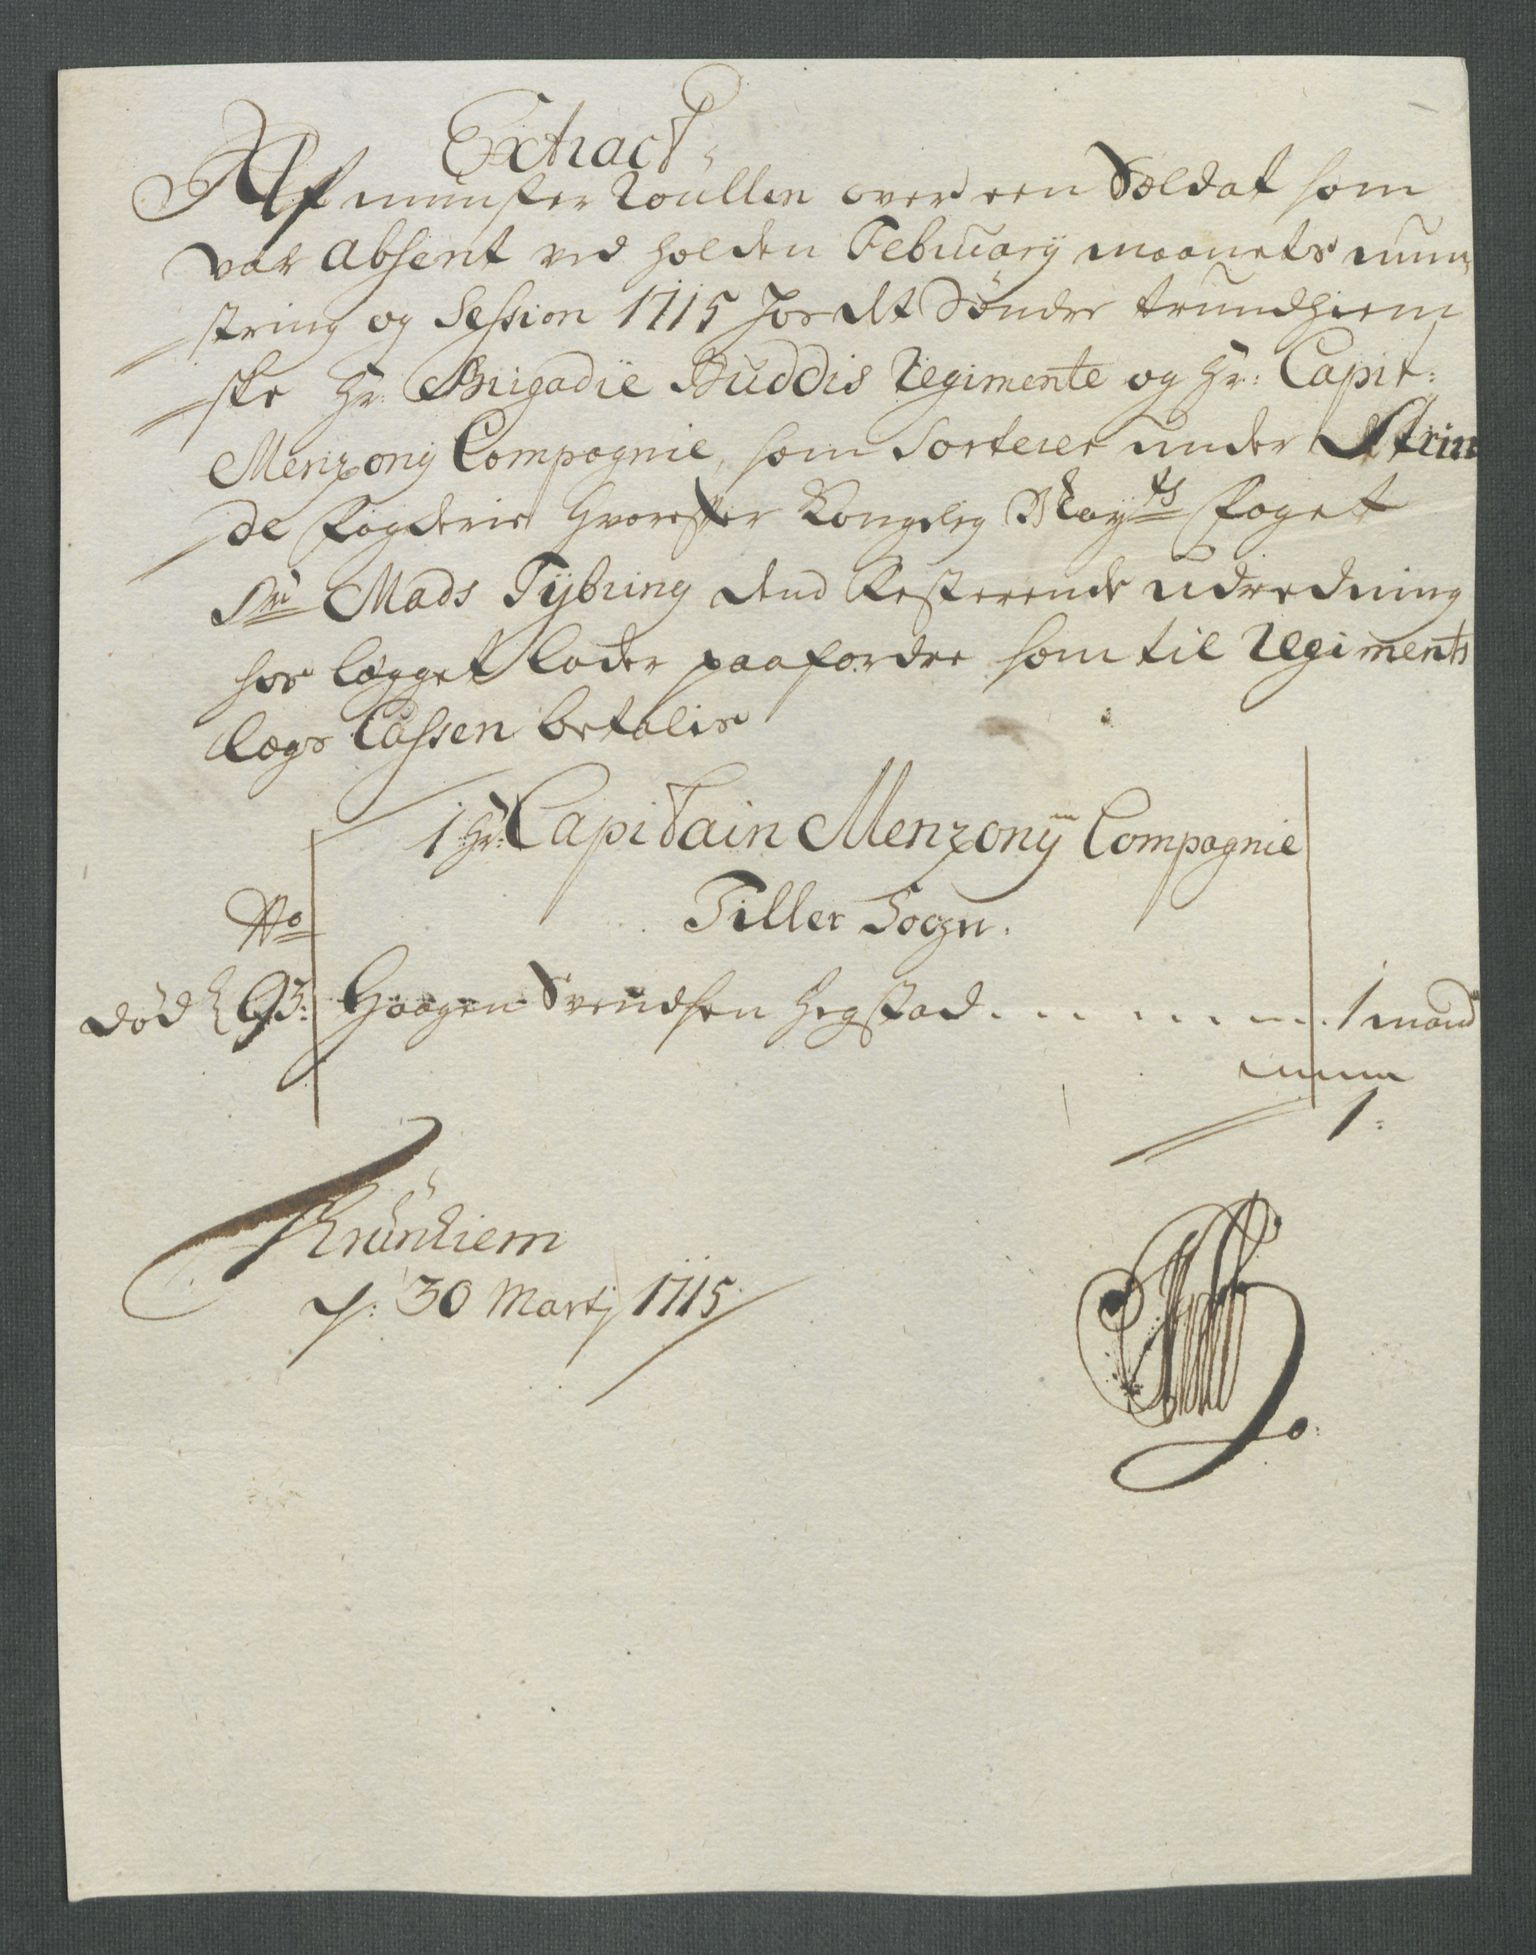 Extract
Af munster Roullen over een Soldat som
var absent ved holden February maanets mun
string og Session 1715 for det Sønder trundhiem
ske Hr: Brigadie Buddis Regimente og Hr: Capit:
Menzony Compagnie, som Sorterer under Strin
de fogderie hvorefter Kongelig Mayts foget
Sr Mads Tÿbring dend Resterende udredning
hos lægget lader paafordre som til Regiments
lægs Cassen betalis
1 Hr: Capitain Menzonÿ Compagnie
No Tiller Sogn.
død 93: Haagen Svendsen Hegstad . . . . . . . . 1 mand
1:
Trünhiem
d: 30 Martj 1715